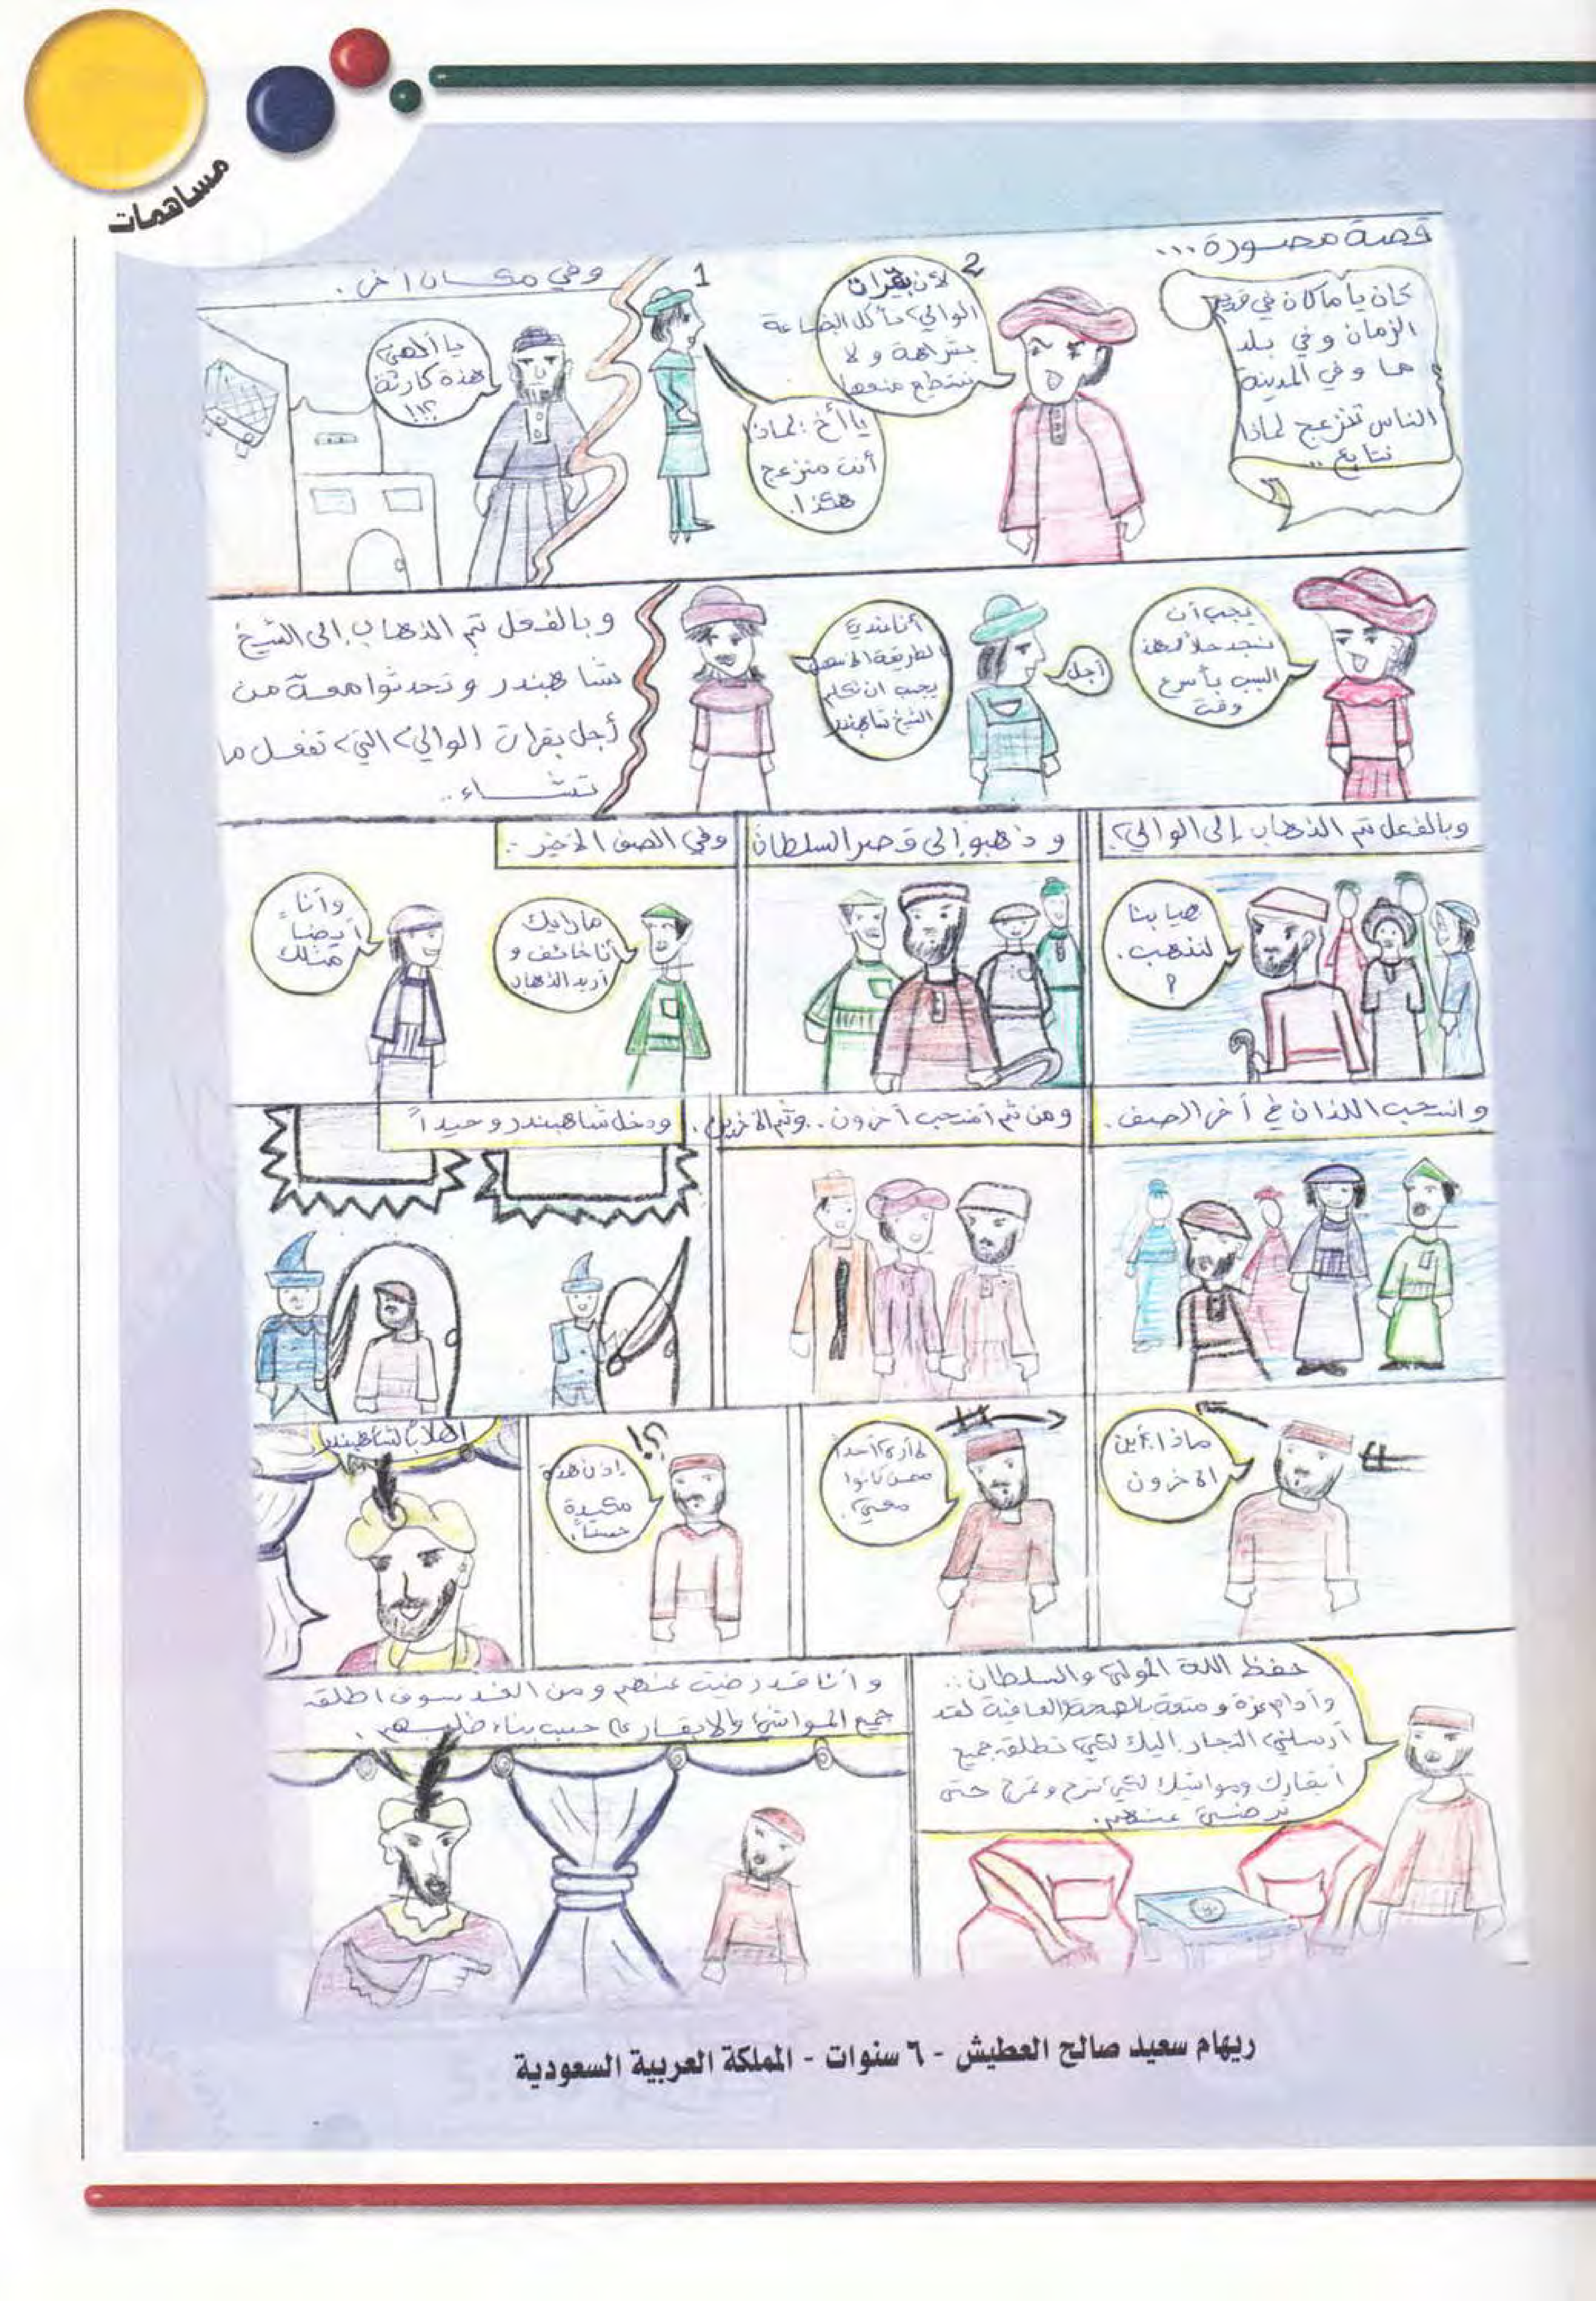 مساهمات
قصة مصورة ...
كان يا ما كان في قديم
الزمان وفي بلد
ما وفي المدينة
الناس تنزعج لماذا
نتابع ..
1
يا أخ : لماذا
أنت منزعج
هكذا.
2
لأن بقرات
الوالي تأكل البضاعة
بشراهة ولا
نستطيع منعها
وفي مكان أخر .
يا ألهي
هذة كارثة
!!؟
يجب أن
نجد حلاً لهذا
السبب بأسرع
وقت
أجل
أنا عندي
الطريقة الأسهل
يجب ان نكلم
الشيخ شاهبندر
وبالفعل تم الذهاب إلى الشيخ
شاهبندر وتحدثوا معة من
أجل بقرات الوالي التي تفعل ما
تشاء ..
وبالفعل تم الذهاب إلى الوالي
هيا بنا
لنذهب .
؟
وذهبو إلى قصر السلطان
وفي الصف الأخير ..
ما رايك
أنا خائف و
أريد الذهاب
وأنا
أيضاً
مثلك
وانسحب اللذان في أخر الصف .
ومن ثم أنسحب أخرون .. وثم الأخرين .
ودخل شاهبندر وحيداً
ماذا. أين
الأخرون
لم أرى أحداً
ممن كانوا
معي .
؟!
إذن هذة
مكيدة
حسناً .
أهلاً بشاهبندر
حفظ اللة المولى والسلطان ..
وأدام عزة ومتعة بالصحة والعافية لقد
أرسلني التجار اليك لكي تطلق جميع
أبقارك ومواشيك لكي تسرح وتمرح حتى
ترضى عنهم .
وأنا قد رضيت عنهم ومن الغد سوف اطلق
جميع المواشي والابقار على حسب بناء طلبهم .
ريهام سعيد صالح العطيش - ٦ سنوات - المملكة العربية السعودية